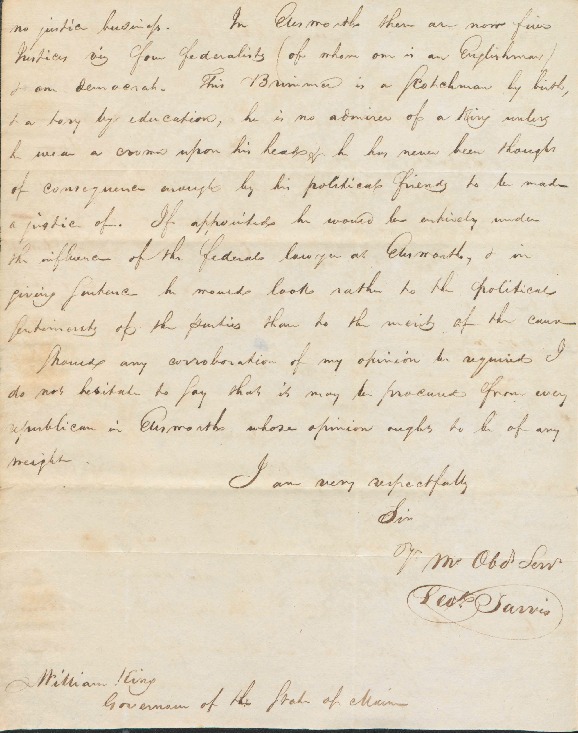 no justice business. In Elsworth there are now five
Justices viz four federalists (of whom one is an Englishman)
& one democrat. This Brimmer is a Scotchman by birth,
& a tory by education, he is no admirer of a King unless
he wear a crown upon his head & he has never been thought
of consequence enough by his political friends to be made
a justice of. If appointed he would be entirely under
the influence of the federal lawyer at Elsworth, & in
giving sentence he would look rather to the political
sentiments of the parties than to the merits of the cause
Should any corroboration of my opinion be required I
do not hesitate to say that it may be procured from every
republican in Elsworth whose opinion ought to be of any
weight.
I am very respectfully
Sir
Yr Mo Obdt Servt
Leod. Jarvis
William King
Governour of the State of Maine